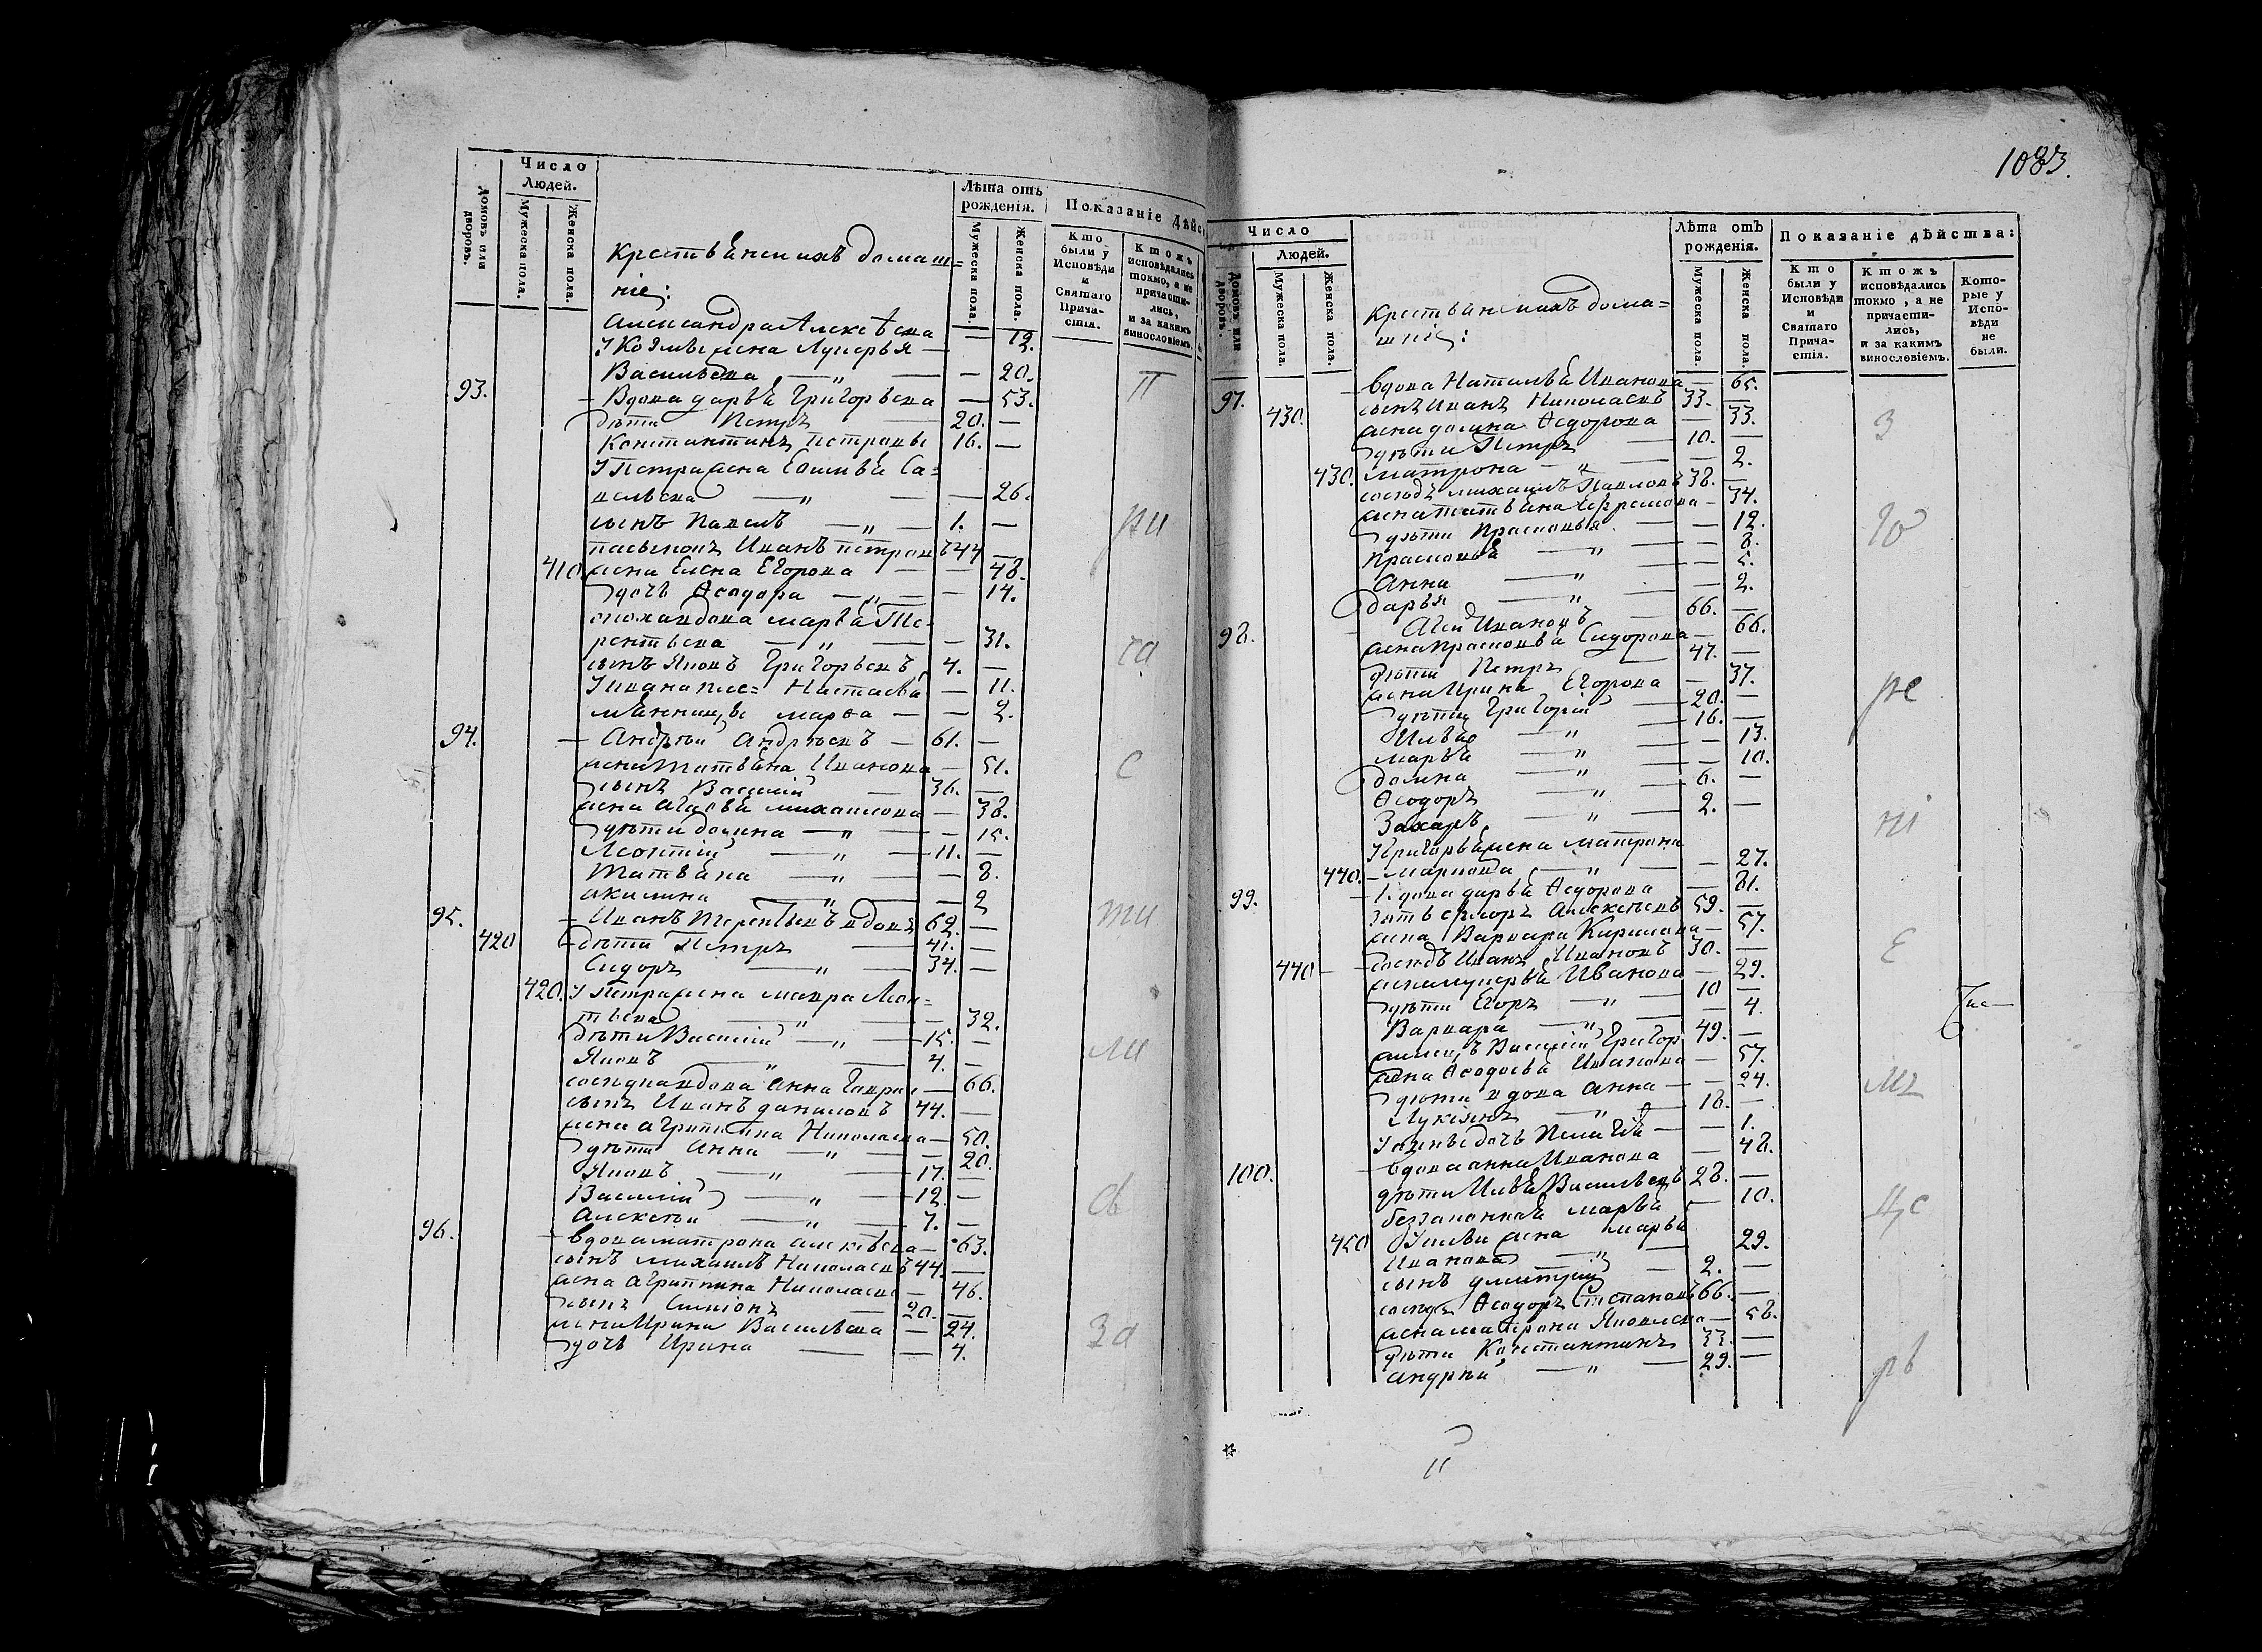 Число
Людей.
Домовъ или дворовъ.
Мужеска пола.
Женска пола.
Лѣта отъ рожденія.
Мужеска пола.
Женска пола.
Показаніе дѣйс
Кто были у Исповѣди и Святаго Причастія.
Ктожъ исповѣдались токмо, а не причастились, и за какимъ винословіемъ.
крестьянскихъ домаш=
ніе:
Александра Алексѣева — 12.
У Козмы жена Лукерья —
Васильева — „ — — 20.
93. Вдова Дарья Григорьева — 53.
дѣти Петръ — 20. —
Константинъ Петровы 16. —
У Петра жена Софья Са=
вельева — „ — — 26.
сынъ Павелъ — „ — 1. —
пасынокъ Иванъ Петровъ 44 —
410 жена Елена Егорова — — 48.
дочь Ѳеодора — „ — — 14.
сноха вдова Марья Те=
рентьева — „ — — 31.
сынъ Яковъ Григорьевъ 4. —
У Ивана пле= Настасья — 11.
мянницы Марѳа — — 2.
94. — Андрей Андреевъ — 61. —
жена Татьяна Иванова — 51.
сынъ Василій — 36. —
жена Агаѳья Михаилова — 38.
дѣти Домна — „ — — 15.
Леонтій — „ — 11. —
Татьяна — „ — — 8.
Акилина — „ — — 2
95. — Иванъ Терентьевъ вдовъ 62. —
420 дѣти Петръ — 41. —
Сидоръ — „ — 34. —
420. У Петра жена Мавра Леон=
тьева — „ — — 32.
дѣти Василій — „ — 15. —
Яковъ — „ — 4. —
сосѣдка вдова Анна Гаврил — 66.
сынъ Иванъ Даниловъ 44. —
жена Агрипина Николаева — 50.
дѣти Анна — „ — — 20.
Яковъ — „ — 17. —
Василій — „ — 12. —
Алексѣй — „ — 7. —
96. — вдова Матрона Алексѣева — 63.
сынъ Михаилъ Николаевъ 44. —
жена Агрипина Николаев — 46.
сынъ Симіонъ — 20. —
жена Ирина Васильева — 24.
дочь Ирина — — 4.
П
ри
ча
с
ти
ли
сь
За
1083.
Число
Людей.
Домовъ или дворовъ.
Мужеска пола.
Женска пола.
Лѣта отъ рожденія.
Мужеска пола.
Женска пола.
Показаніе дѣйства:
Кто были у Исповѣди и Святаго Причастія.
Ктожъ исповѣдались токмо, а не причастились, и за какимъ винословіемъ.
Которые у Исповѣди не были.
крестьянскихъ дома=
шніе:
97. — вдова Наталья Иванова — 65.
430. сынъ Иванъ Николаевъ 33. —
жена Домна Ѳедорова — 33.
дѣти Петръ — 10. —
430. Матрона — „ — — 2.
сосѣдъ Михаилъ Павловъ 38. —
жена Татьяна Ефремова — 34.
дѣти Прасковья — — 12.
Прасковья — „ — — 8.
Анна — „ — — 5.
Дарья — „ — — 2.
98. — Ивановъ 66. —
жена Прасковья Сидорова — 66.
дѣти Петръ — 47. —
жена Ирина Егорова — 37.
дѣти Григорій — 20. —
Илья — „ — 16. —
Марья — „ — — 13.
Домна — „ — — 10.
Ѳеодоръ — „ — 6. —
Захаръ — „ — 2. —
У Григорья жена Матрона
440. Маркова — „ — — 27.
99. — вдова Дарья Ѳедорова — 81.
зять Егоръ Алексѣевъ 59. —
жена Варвара Кирилова — 57.
440 — сосѣдъ Иванъ Ивановъ 30. —
жена Лукерья Иванова — 29.
дѣти Егоръ — „ — 10 —
Варвара — „ — — 4.
Василій Григор 49. —
жена Ѳеодосья Иванова — 57.
дѣти вдова Анна — — 24.
Лукіянъ — „ — 18. —
У Анны дочь Пелагія — — 1.
100. — вдова Анна Иванова — 48.
дѣти Илья Васильевъ 28. —
беззаконная Марья — 10.
450 У Ильи жена Марья
Иванова — „ — 29.
сынъ Дмитрій — 2. —
сосѣдъ Ѳеодоръ Степановъ 66. —
жена Матрона Яковлева — 58.
дѣти Константинъ 33. —
Андрей — „ — 29. —